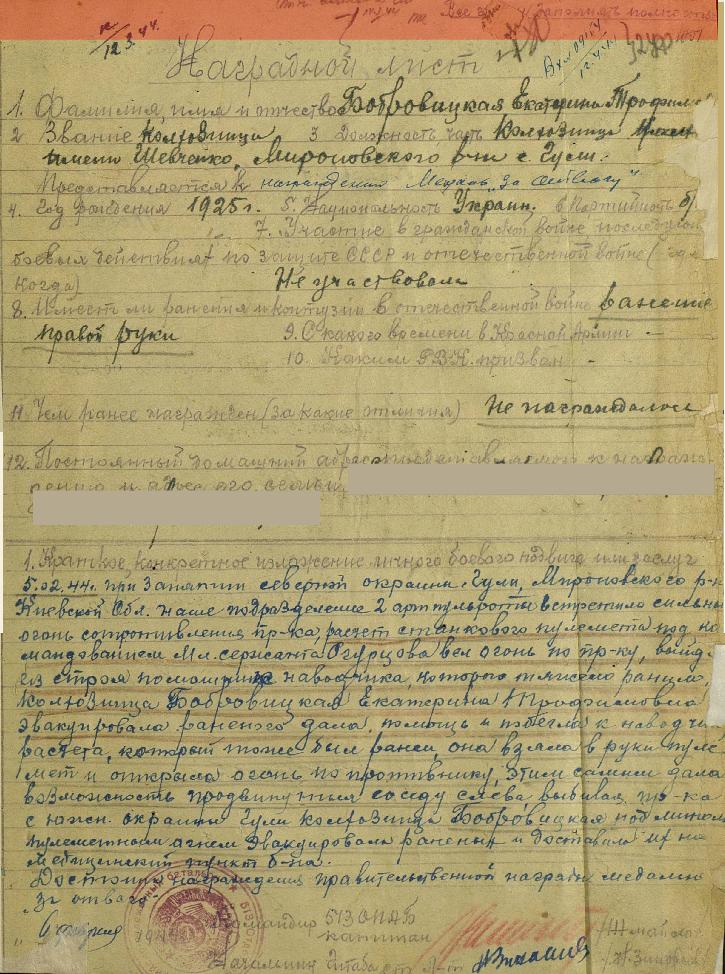 12.3.44.
Наградной лист
1. Фамилия, имя и отчество Бобровицкая Екатерина Трофим
2 Звание колхозница 3 Должность, часть Колхозница
имени Шевченко, Мироновского р-на с. Гули.
Представляется к награждению Медаль "За Отвагу"
4. Год рождения 1925 г. 5. Национальность Украин. 6 Партийность б/
7. Участие в гражданской войне последующ
боевых действиях по защите СССР и отечественной войне (где
когда) Не участвовала
8. Имеет ли ранения и контузии в отечественной войне ранение
правой руки 9. С какого времени в Красной Армии -
10. Каким РВК призван -
11. Чем ранее награжден (за какие отличия) Не награждалась
12. Постоянный домашний адрес представляемого к награж
дению и адрес его семьи
1. Краткое, конкретное изложение личного боевого подвига или заслуг
5.02.44 г. при занятии северной окраины с. Гули, Мироновского р-на
Киевской Обл. наше подразделение 2 артпульроты встретило сильный
огонь сопротивления пр-ка, расчет станкового пулемета под ко
мандованием Мл. сержанта Огурцова вел огонь по пр-ку, выйдя
из строя помощник наводчика, которого тяжело ранило,
колхозница Бобровицкая Екатерина Трофимовна
эвакуировала раненого дала помощь и побегла к наводчи
расчета, который тоже был ранен, она взяла в руки пуле
мет и открыла огонь по противнику, этим самым дала
возможность продвинуться соседу слева, выбивая пр-ка
с южн. окраины Гули колхозница Бобровицкая под
пулеметным огнем эвакуировала раненых и доставила их на
Медицинский пункт б-на.
Достойна награждения правительственной награды медалью
За отвагу.
Командир 513 ОПАБ
капитан
Начальник Штаба ст. л-т